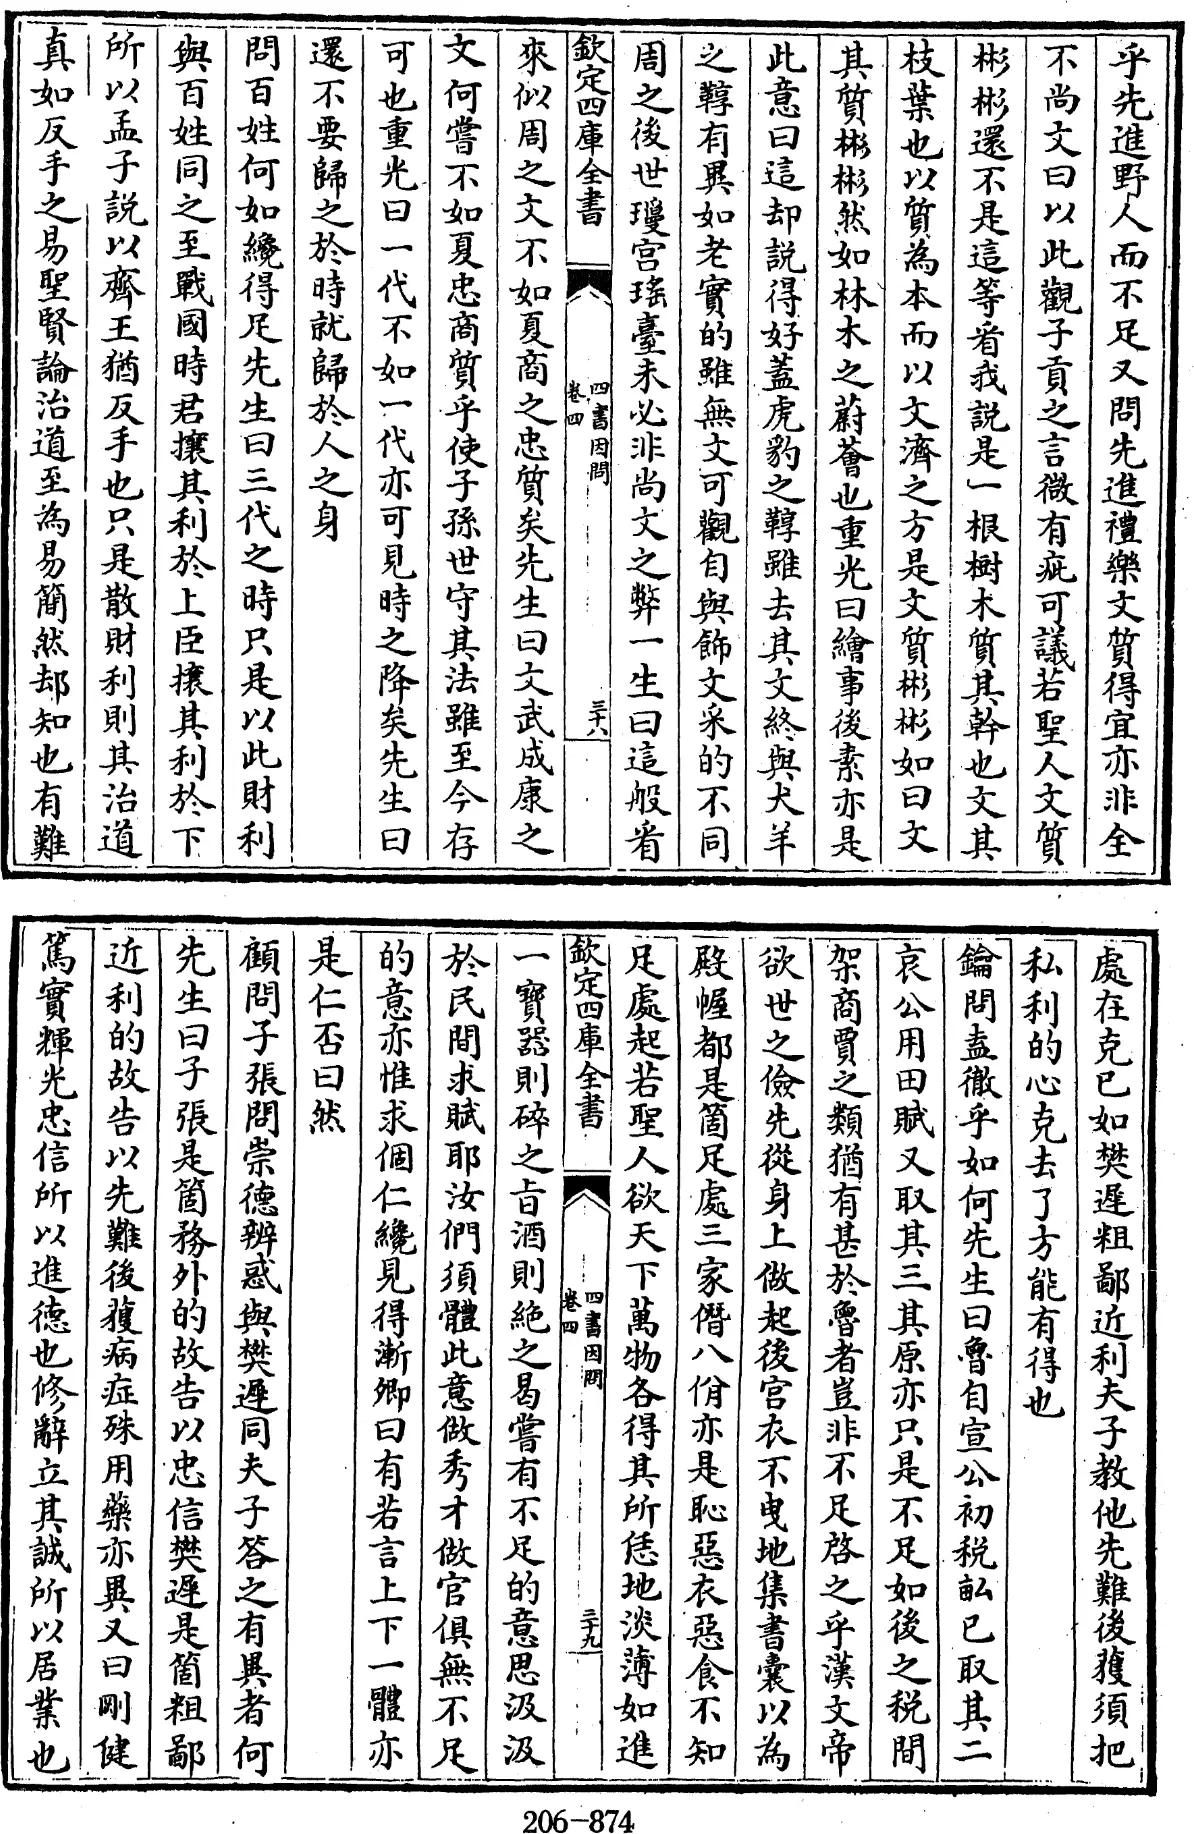 乎先進野人而不足又問先進禮樂文質得宜亦非全
不尚文曰以此觀子貢之言微有疵可議若聖人文質
彬彬還不是這等看我說是一根樹木質其幹也文其
枝葉也以質為本而以文濟之方是文質彬彬如曰文
其質彬彬然如林木之蔚薈也重光曰繪事後素亦是
此意曰這却説得好蓋虎豹之鞟雖去其文終與犬羊
之鞟有異如老實的雖無文可觀自與飾文采的不同
周之後世瓊宫瑶臺未必非尚文之弊一生曰這般看
欽定四庫全書
四書因問
卷四
三十八
來似周之文不如夏商之忠質矣先生曰文武成康之
文何嘗不如夏忠商質乎使子孫世守其法雖至今存
可也重光曰一代不如一代亦可見時之降矣先生曰
還不要歸之於時就歸於人之身
問百姓何如纔得足先生曰三代之時只是以此財利
與百姓同之至戰國時君攘其利於上臣攘其利於下
所以孟子説以齊王猶反手也只是散財利則其治道
真如反手之易聖賢論治道至為易簡然却知也有難
處在克已如樊遲粗鄙近利夫子教他先難後獲須把
私利的心克去了方能有得也
鑰問盍徹乎如何先生曰魯自宣公初税畝已取其二
哀公用田賦又取其三其原亦只是不足如後之税間
架商賈之類猶有甚於魯者豈非不足啓之乎漢文帝
欲世之儉先從身上做起後宫衣不曳地集書囊以為
殿幄都是箇足處三家僭八佾亦是恥惡衣惡食不知
足處起若聖人欲天下萬物各得其所恁地淡薄如進
欽定四庫全書
四書因問
卷四
三十九
一寳器則碎之旨酒則絶之曷嘗有不足的意思汲汲
於民間求賦耶汝們須體此意做秀才做官俱無不足
的意亦惟求個仁纔見得漸卿曰有若言上下一體亦
是仁否曰然
顧問子張問崇德辨惑與樊遲同夫子答之有異者何
先生曰子張是箇務外的故告以忠信樊遲是箇粗鄙
近利的故告以先難後獲病症殊用藥亦異又曰剛健
篤實輝光忠信所以進德也修辭立其誠所以居業也
206-874